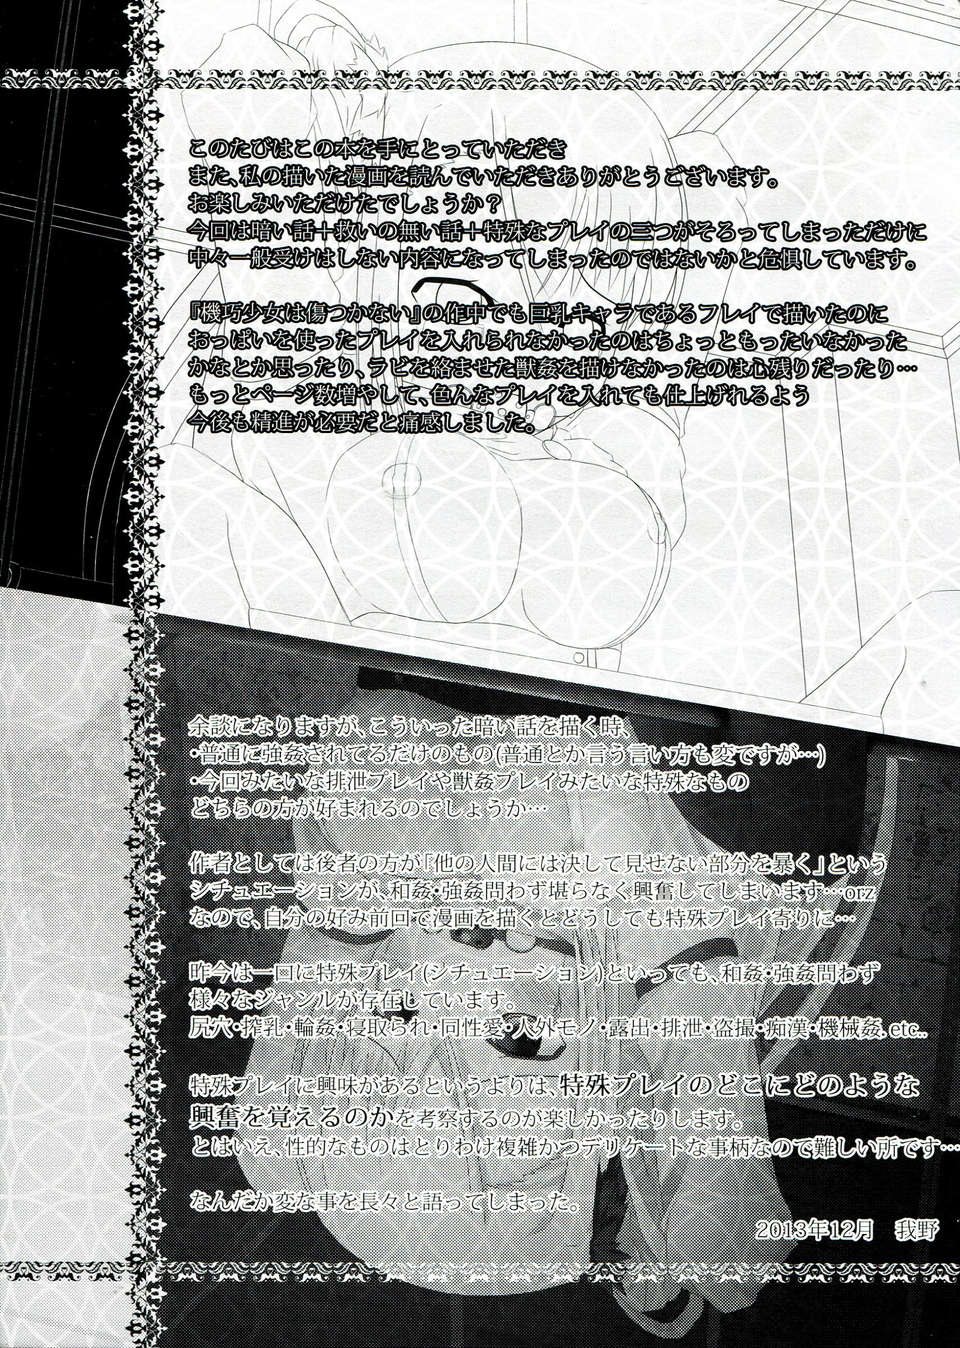 このたびはこの本を手にとっていただき
また、私の描いた漫画を読んでいただきありがとうございます。
お楽しみいただけたでしょうか？
今回は暗い話＋救いの無い話＋特殊なプレイの三つがそろってしまっただけに
中々一般受けはしない内容になってしまったのではないかと危惧しています。
『機巧少女は傷つかない』の作中でも巨乳キャラであるフレイで描いたのに
おっぱいを使ったプレイを入れられなかったのはちょっともったいなかった
かなとか思ったり、ラビを絡ませた獣姦を描けなかったのは心残りだったり…
もっとページ数増やして、色んなプレイを入れても仕上げれるよう
今後も精進が必要だと痛感しました。
余談になりますが、こういった暗い話を描く時、
・普通に強姦されてるだけのもの(普通とか言う言い方も変ですが…)
・今回みたいな排泄プレイや獣姦プレイみたいな特殊なもの
どちらの方が好まれるのでしょうか…
作者としては後者の方が「他の人間には決して見せない部分を暴く」という
シチュエーションが、和姦・強姦問わず堪らなく興奮してしまいます…orz
なので、自分の好み前回で漫画を描くとどうしても特殊プレイ寄りに…
昨今は一口に特殊プレイ(シチュエーション)といっても、和姦・強姦問わず
様々なジャンルが存在しています。
尻穴・搾乳・輪姦・寝取られ・同性愛・人外モノ・露出・排泄・盗撮・痴漢・機械姦 etc..
特殊プレイに興味があるというよりは、特殊プレイのどこにどのような
興奮を覚えるのかを考察するのが楽しかったりします。
とはいえ、性的なものはとりわけ複雑かつデリケートな事柄なので難しい所です…
なんだか変な事を長々と語ってしまった。
2013年12月　我野